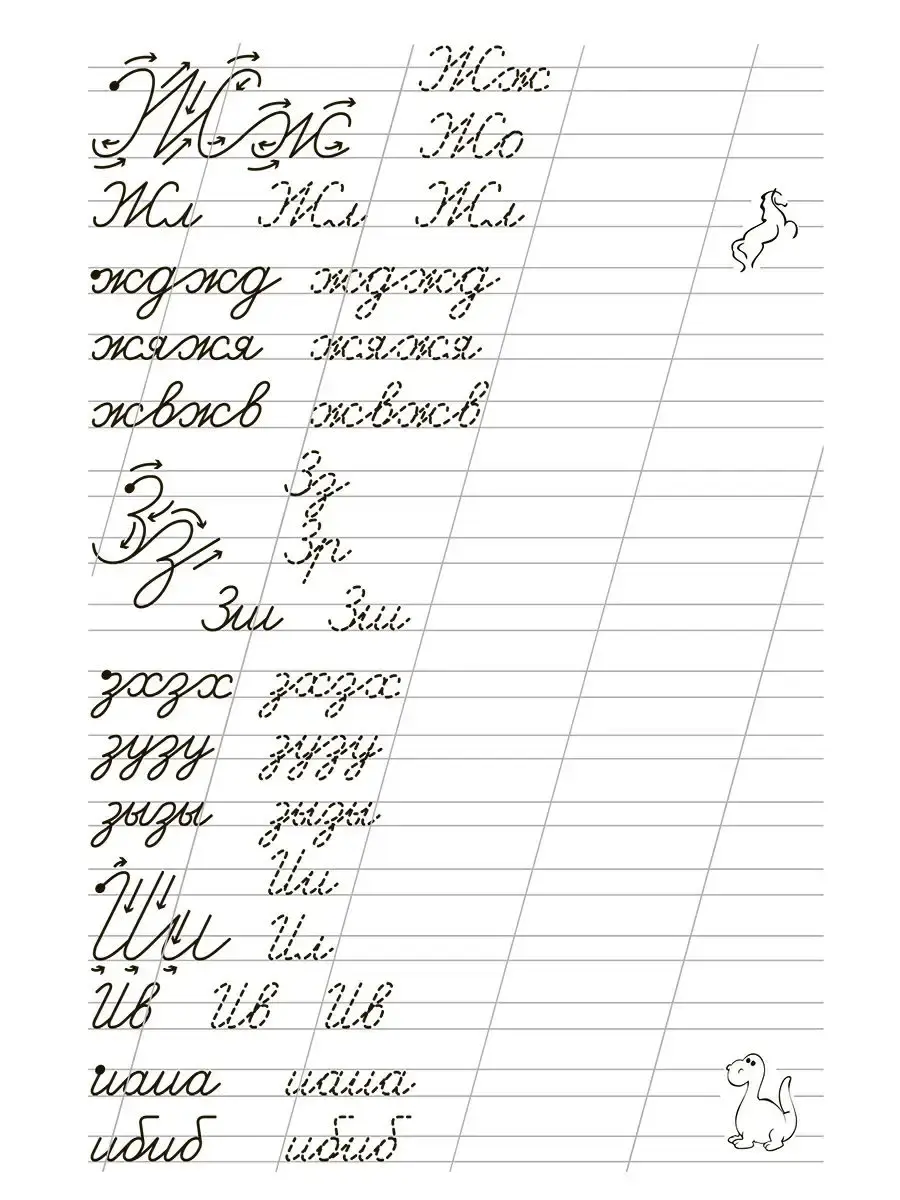 Жж Жж
Жо
Жл Жл Жл
жджд жджд
жяжя жяжя
жвжв жвжв
Зз Зз
Зр
Зш Зш
зхзх зхзх
зузу зузу
зызы зызы
Ии Ии
Ил
Ив Ив Ив
иаиа иаиа
ибиб ибиб